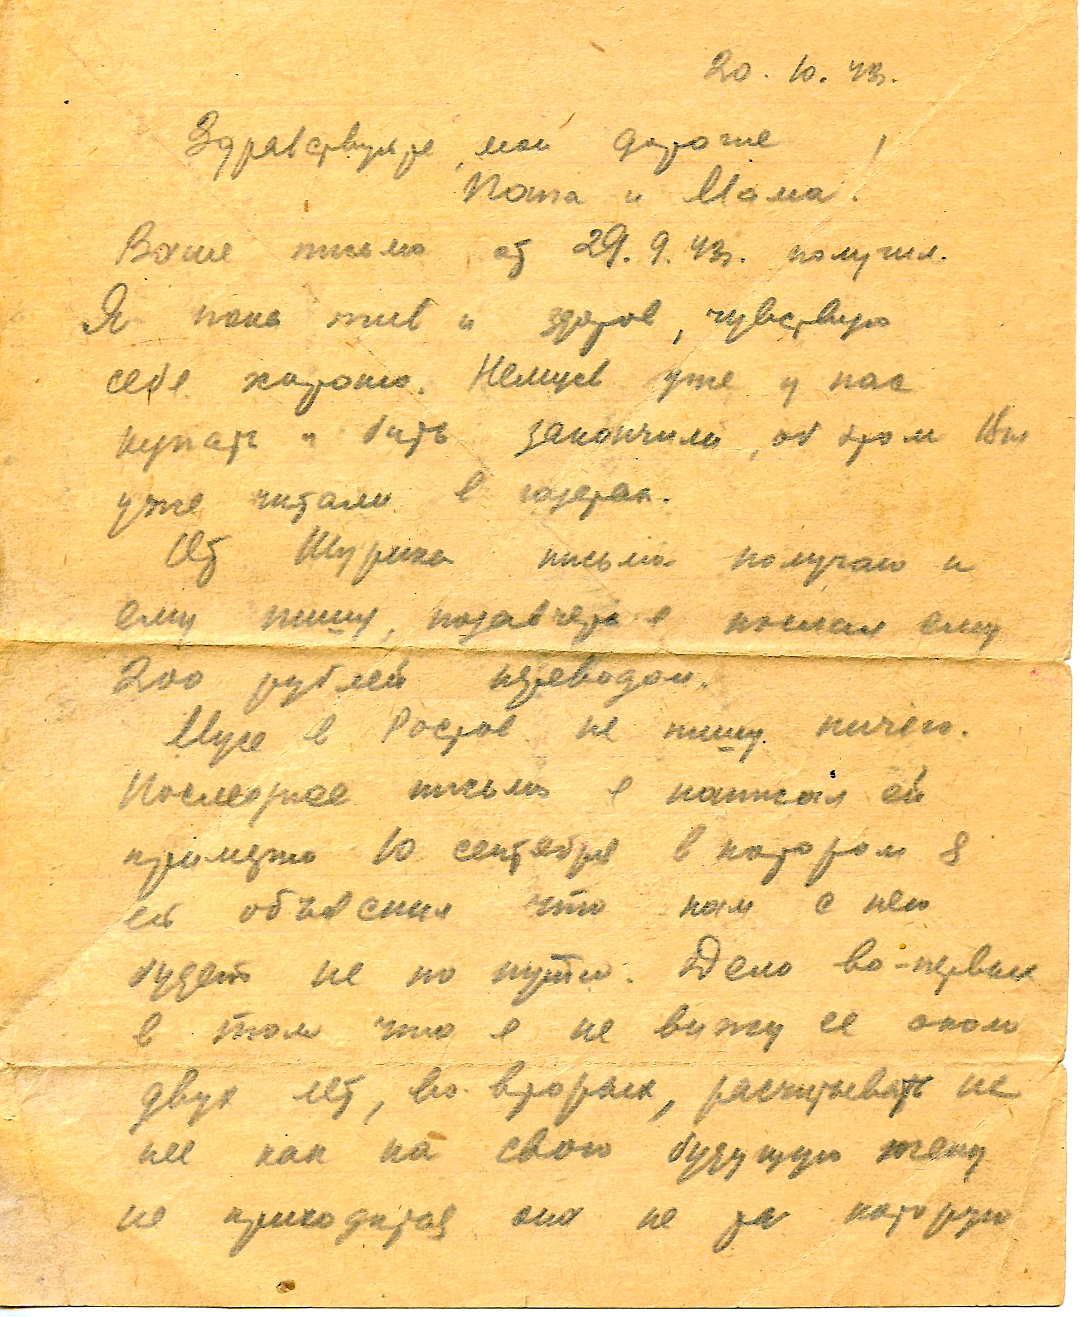 20. 10. 43г.
Здравствуйте, мои дорогие
Папа и Мама!
Ваше письмо от 29. 9. 43г. получил.
Я пока жив и здоров, чувствую
себя хорошо. Немцев уже у нас
купать и бить закончили, об этом Вы
уже читали в газетах.
От Шурика письма получаю и
ему пишу, позавчера я послал ему
200 рублей переводом.
Мусе в Ростов не пишу ничего.
Последнее письмо я написал ей
примерно 10 сентября в котором я
ей объяснил что нам с нею
будет не по пути. Дело во-первых
в том что я не вижу ее около
двух лет, во-вторых, расчитывать на
нее как на свою будущую жену
не приходится она не та которую